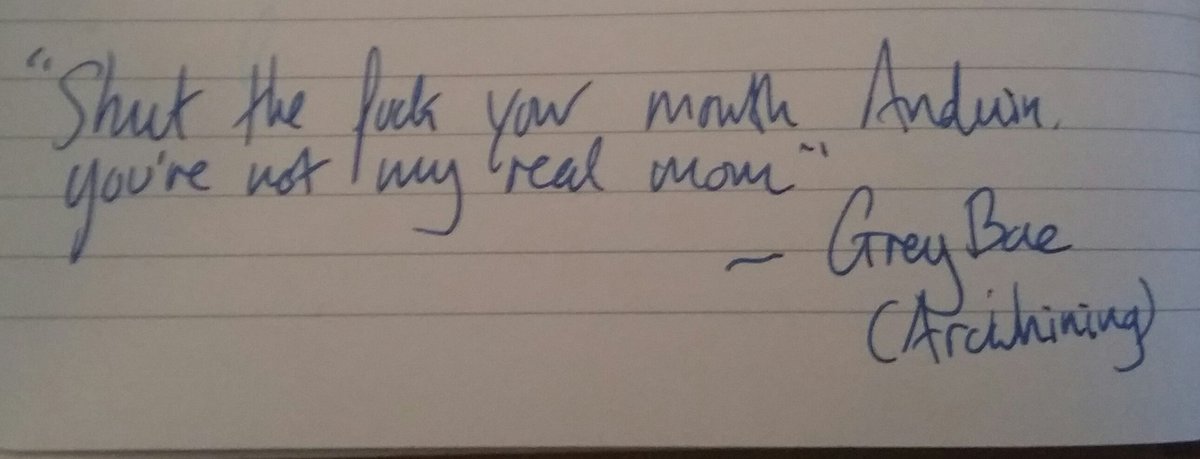 "Shut the fuck your mouth Anduin.
you're not my real mom"
~ Grey Bae
(Arcwhining)